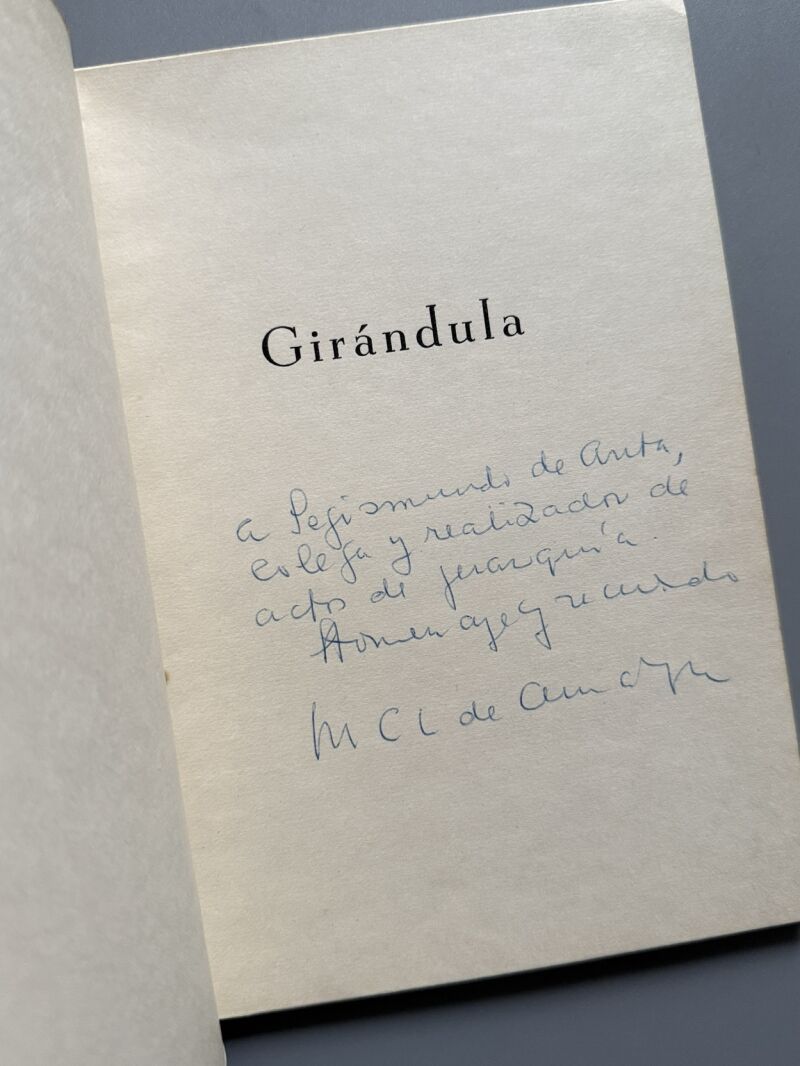 Girándula
a Segismundo de Anta,
colega y realizador de
actos de jerarquía.
Homenaje y recuerdo
M C L de